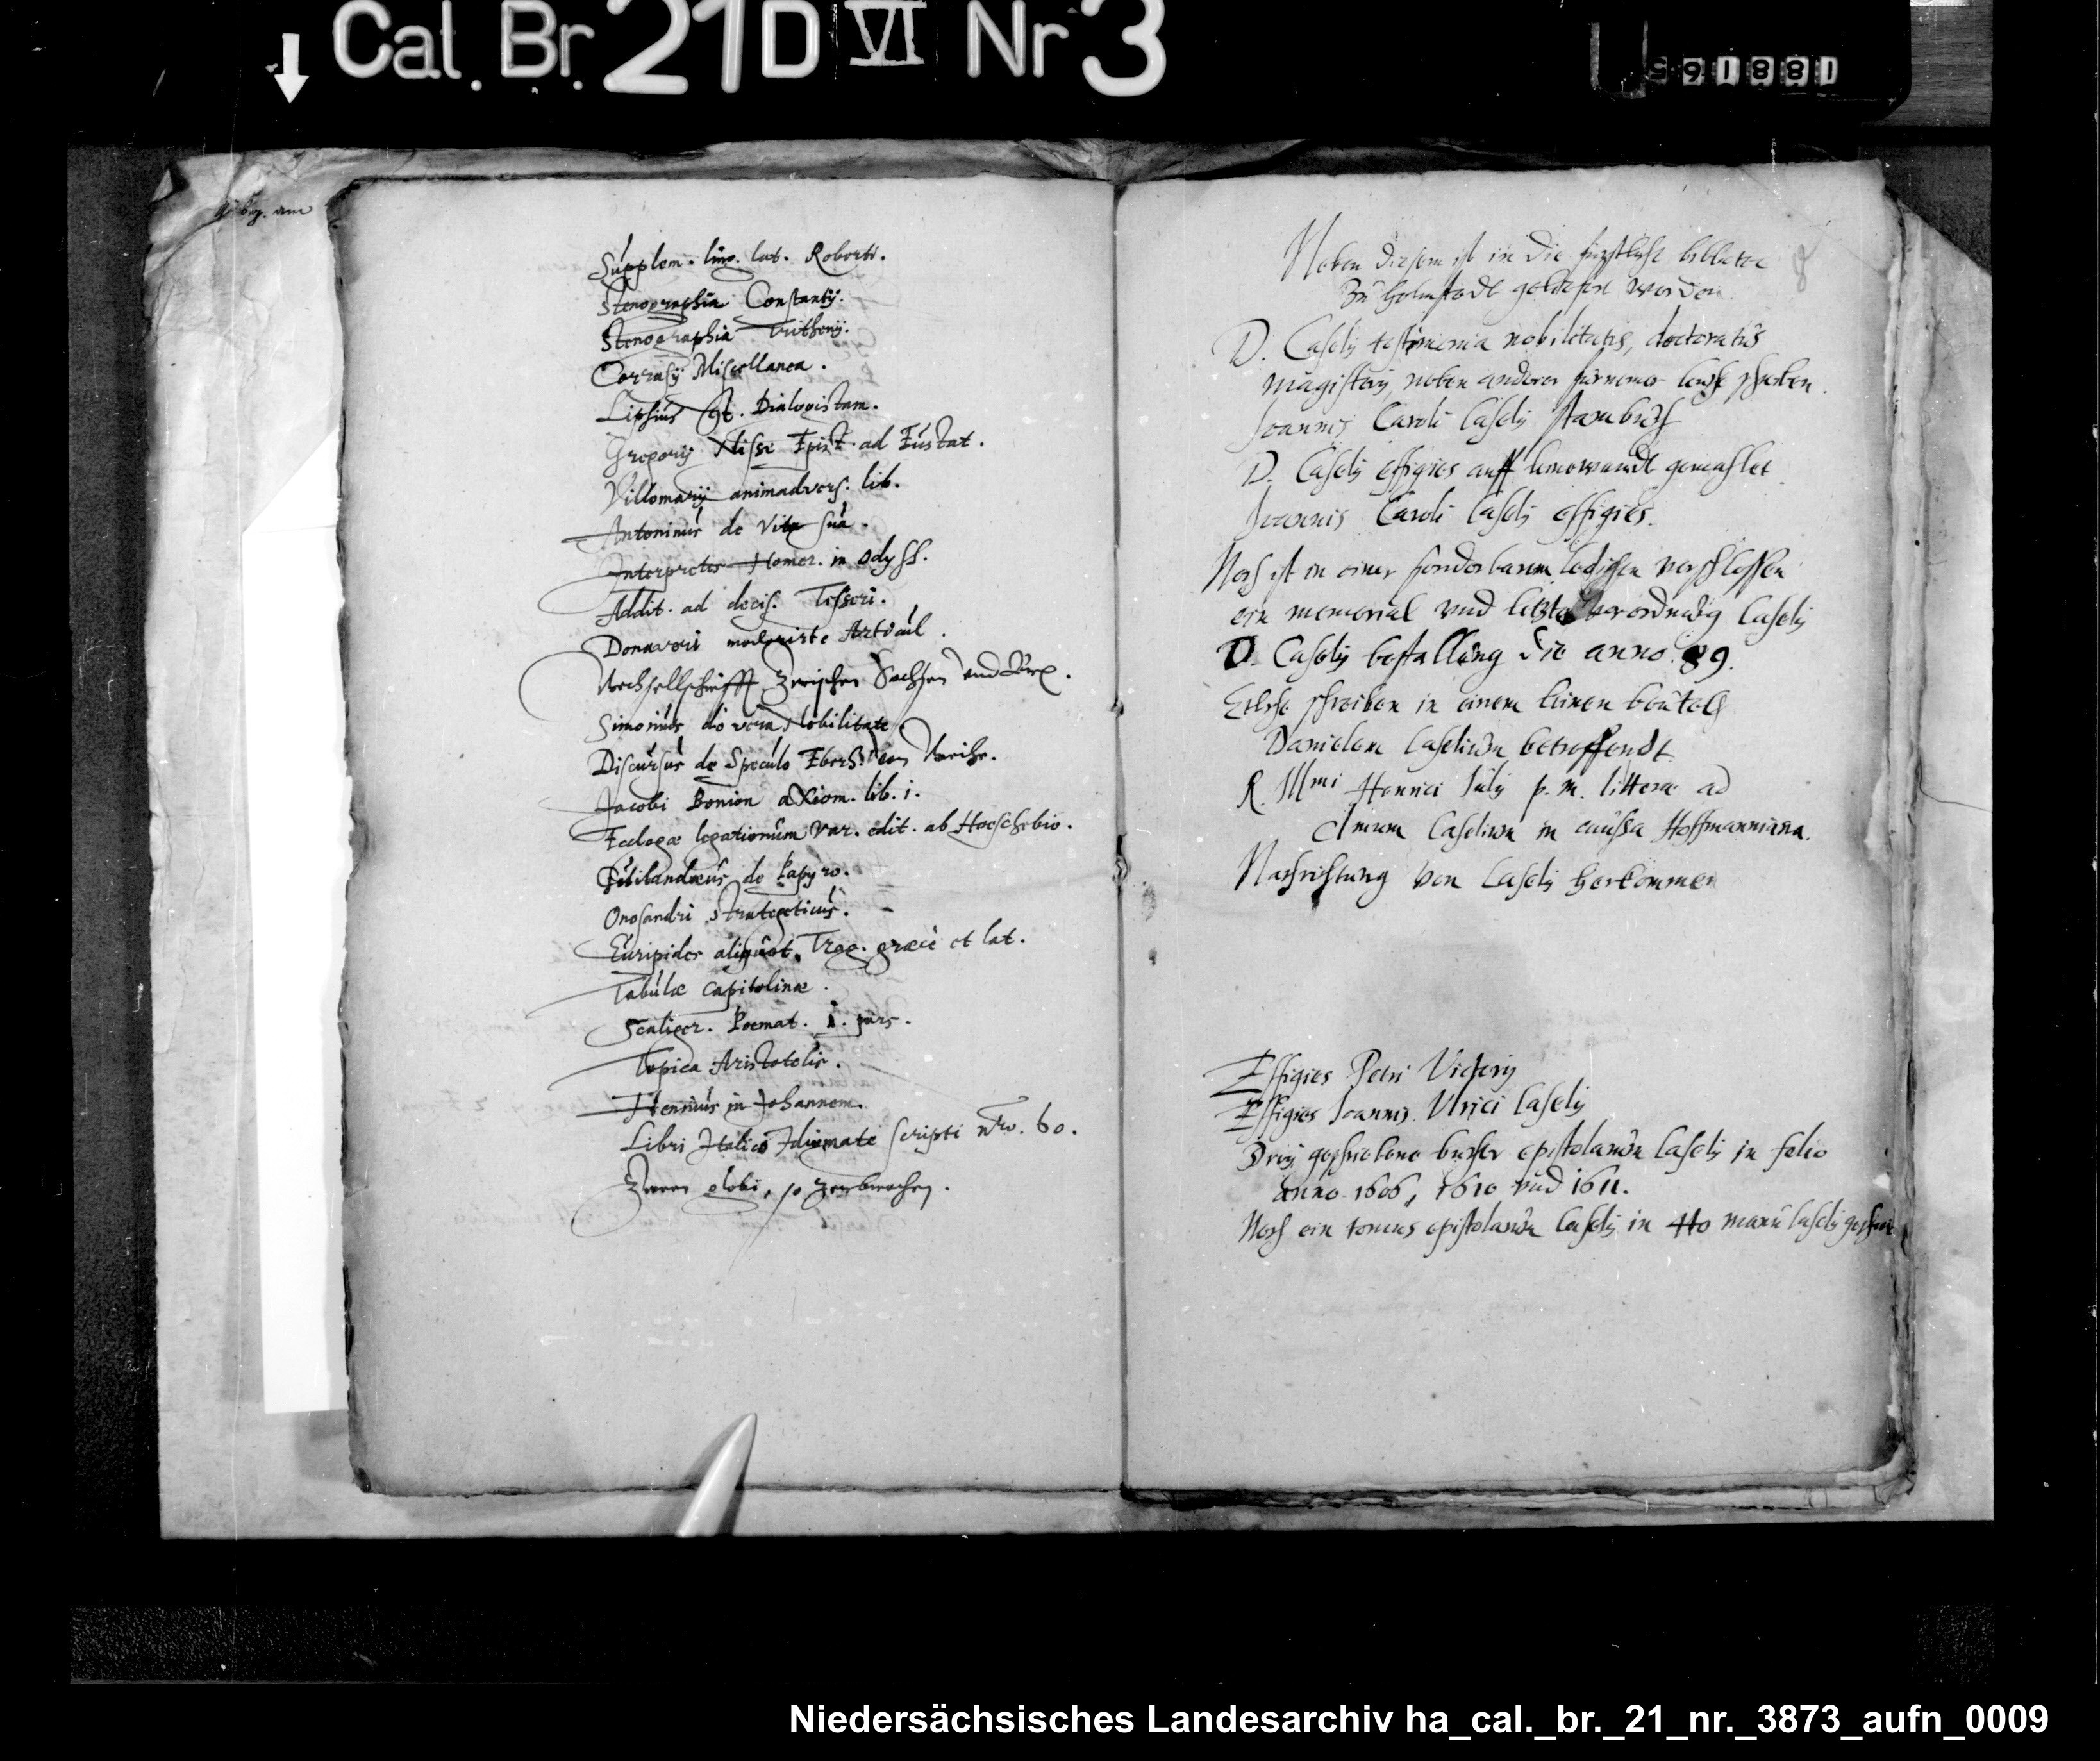 Cal. Br. 21 D VI Nr 3
591881
Supplem. ling. lat. Roberti.
Stenographia Constantij.
Stenographia Trithemij.
Corrasij Miscellanea.
Lipsius Dialogistam.
Gregorij Nisse Epist. ad Eustat.
Villomarij animadvers. lib.
Antoninus de vita sua.
Interpretes Homer. in Odyss.
Addit. ad decis. Tesseri.
Donaveri
Wechsellschrifft zwischen Sachsen und
Simonius de vera Nobilitate
Discursus de Speculo Eberh. von Weihe.
Jacobi Bonion axiom. lib. 1.
Eclogæ legationum var. edit. ab Hoeschelio.
Guilandinus de Papyro.
Onosandri Strategeticus.
Euripides aliquot. Trag. græcè et lat.
Tabulæ capitolinæ.
Scaliger. Poemat. 1. pars.
Topica Aristotelis.
in Johannem.
Libri Italico Idiomate scripti nro. 60.
Zween globi, so zerbrochen.
8
Neben diesem ist in die fürstliche
zu Helmstadt geliefert worden
D. Caselij testimonia nobilitatis, doctoratus
magisterij neben anderer fürnemer leuthe schreiben.
Joannis Caroli Caselij stambuch
D. Caselij effigies auff leinewandt gemahlet
Joannis Caroli Caselij effigies.
Noch ist in einer sonderbaren ladichen verschlossen
ein memorial und letzte verordnung Caselij
D. Caselij bestallung die anno. 89.
Etliche schreiben in einem leinen beutell
Danielem Caselium betreffendt
R. Illmi Henrici Julij p. m. litteræ ad
Caselium in caussa Hoffmanniana.
Nachrichtung von Caselij herkommen
Effigies Petri Victorij
Effigies Joannis Ulrici Caselij
Drey geschriebene bucher epistolarum Caselij in folio
anno 1606, 1610 und 1611.
Noch ein tomus epistolarum Caselij in 4to manu Caselij
Niedersächsisches Landesarchiv ha_cal._br._21_nr._3873_aufn_0009